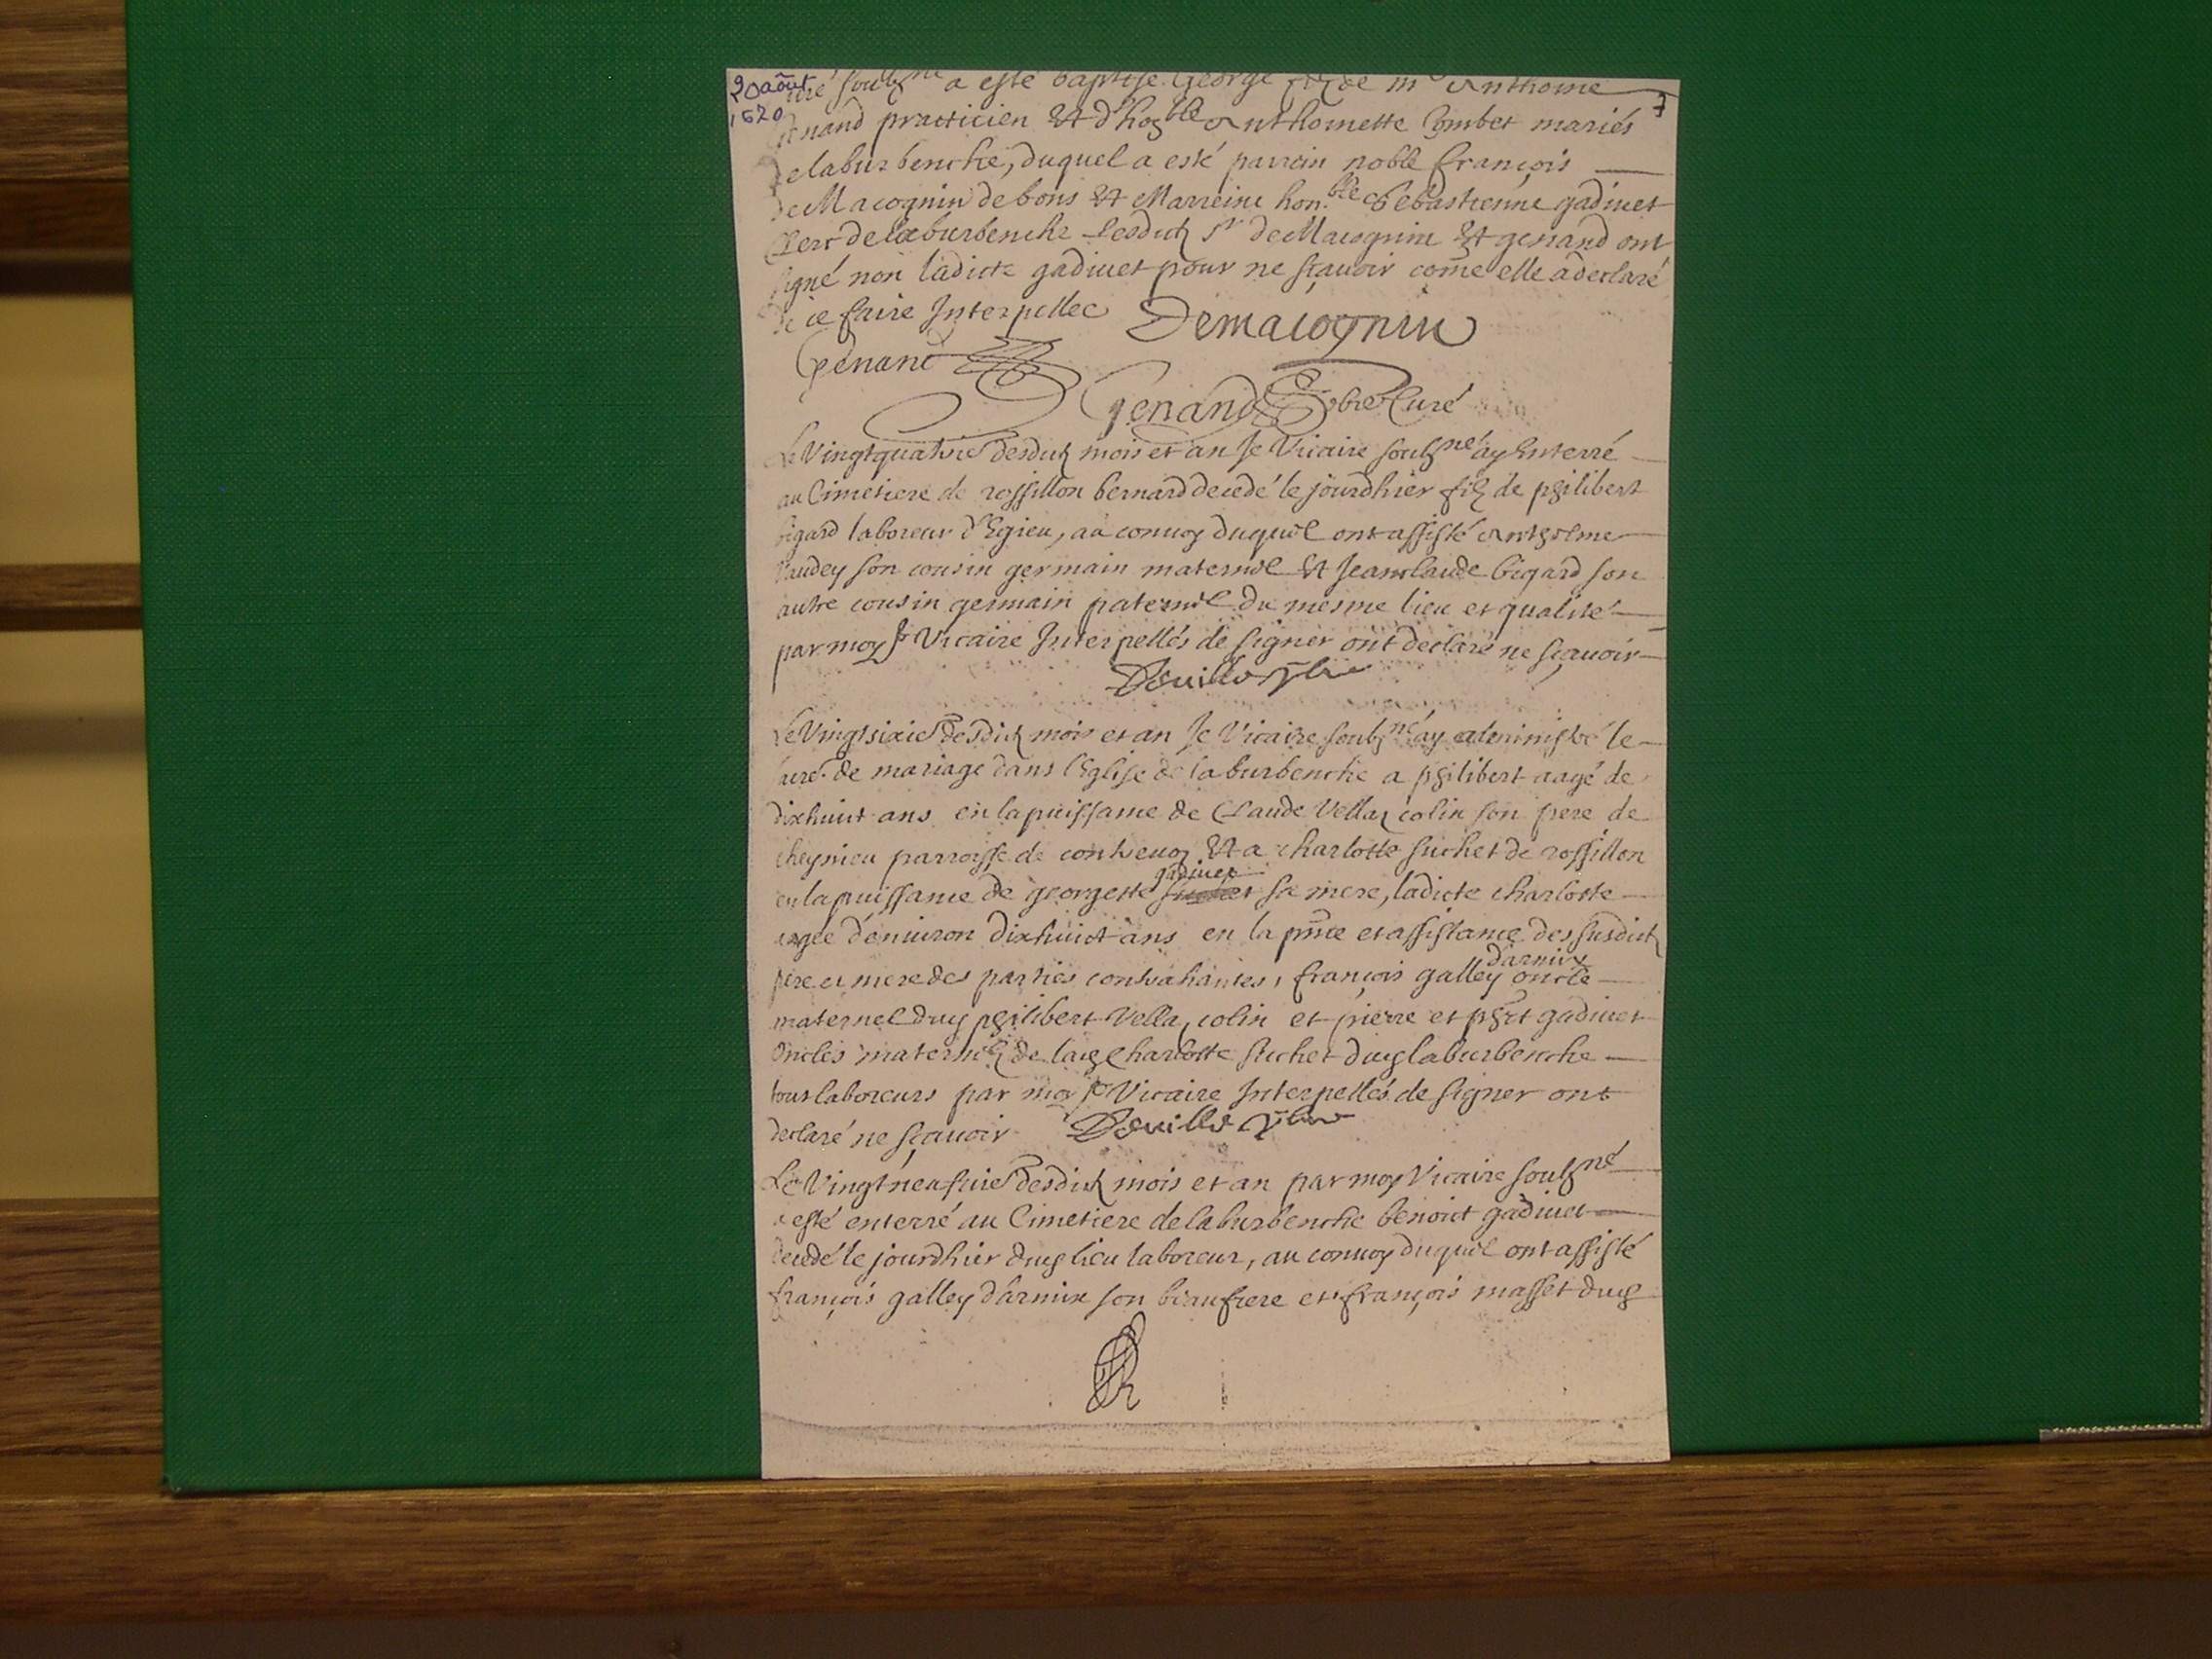 20 août
1670
7
curé soubz.né a esté baptisé George filz de m.e Anthoine
Genand practicien et d'hoz.ble Anthoinette Combet mariés
de laburbenche, duquel a esté parrein noble françois
de Macognin de bons et Marreine hon.ble Sebastienne gadiuet
de laburbenche lesdictz s.r de Macognin et genand ont
signé non ladicte gadiuet pour ne sçauoir come elle a declaré
de ce faire Interpellee Demacognin
Genand
Genand pbre Curé
Le Vingtquatrie desdictz mois et an Je Vicaire soubz.né ay Enterré
au Cimetiere de rossillon bernard decedé le jourdhier filz de philibert
bigard laboreur d'Egieu, au conuoy duquel ont assisté Anthelme
Vaudey son cousin germain maternel et Jeanclaude bigard son
autre cousin germain paternel du mesme lieu et qualité
par moy s.r Vicaire Interpellés de signer ont declaré ne sçauoir
Le Vingtsixie desdictz mois et an Je Vicaire soubz.né ay administré le
sacre. de mariage dans l'Eglise de laburbenche a philibert aagé de
dixhuict ans en la puissance de Claude Vellaz colin son pere de
cheynieu parroisse de contreuoz et a charlotte suchet de rossillon
gadiuet
en la puissance de georgette sa mere, ladicte charlotte
aagée d'enuiron dixhuict ans en la pnce et assistance des susdictz
darmix
pere et mere des parties contrahantes, françois galley oncle
maternel dug philibert Vella, colin et pierre et pht gadiuet
oncles maternelz de lag Charlotte suchet dug laburbenche
tous laboreurs par moy s.r Vicaire Interpellés de signer ont
declaré ne sçauoir
Le Vingtneufuie desdictz mois et an par moy Vicaire soubz.né
a esté enterré au Cimetiere de laburbenche benoict gadiuet
decedé le jourdhier dug lieu laboreur, au conuoy duquel ont assisté
françois galley d'armix son beaufrere et françois masset dug